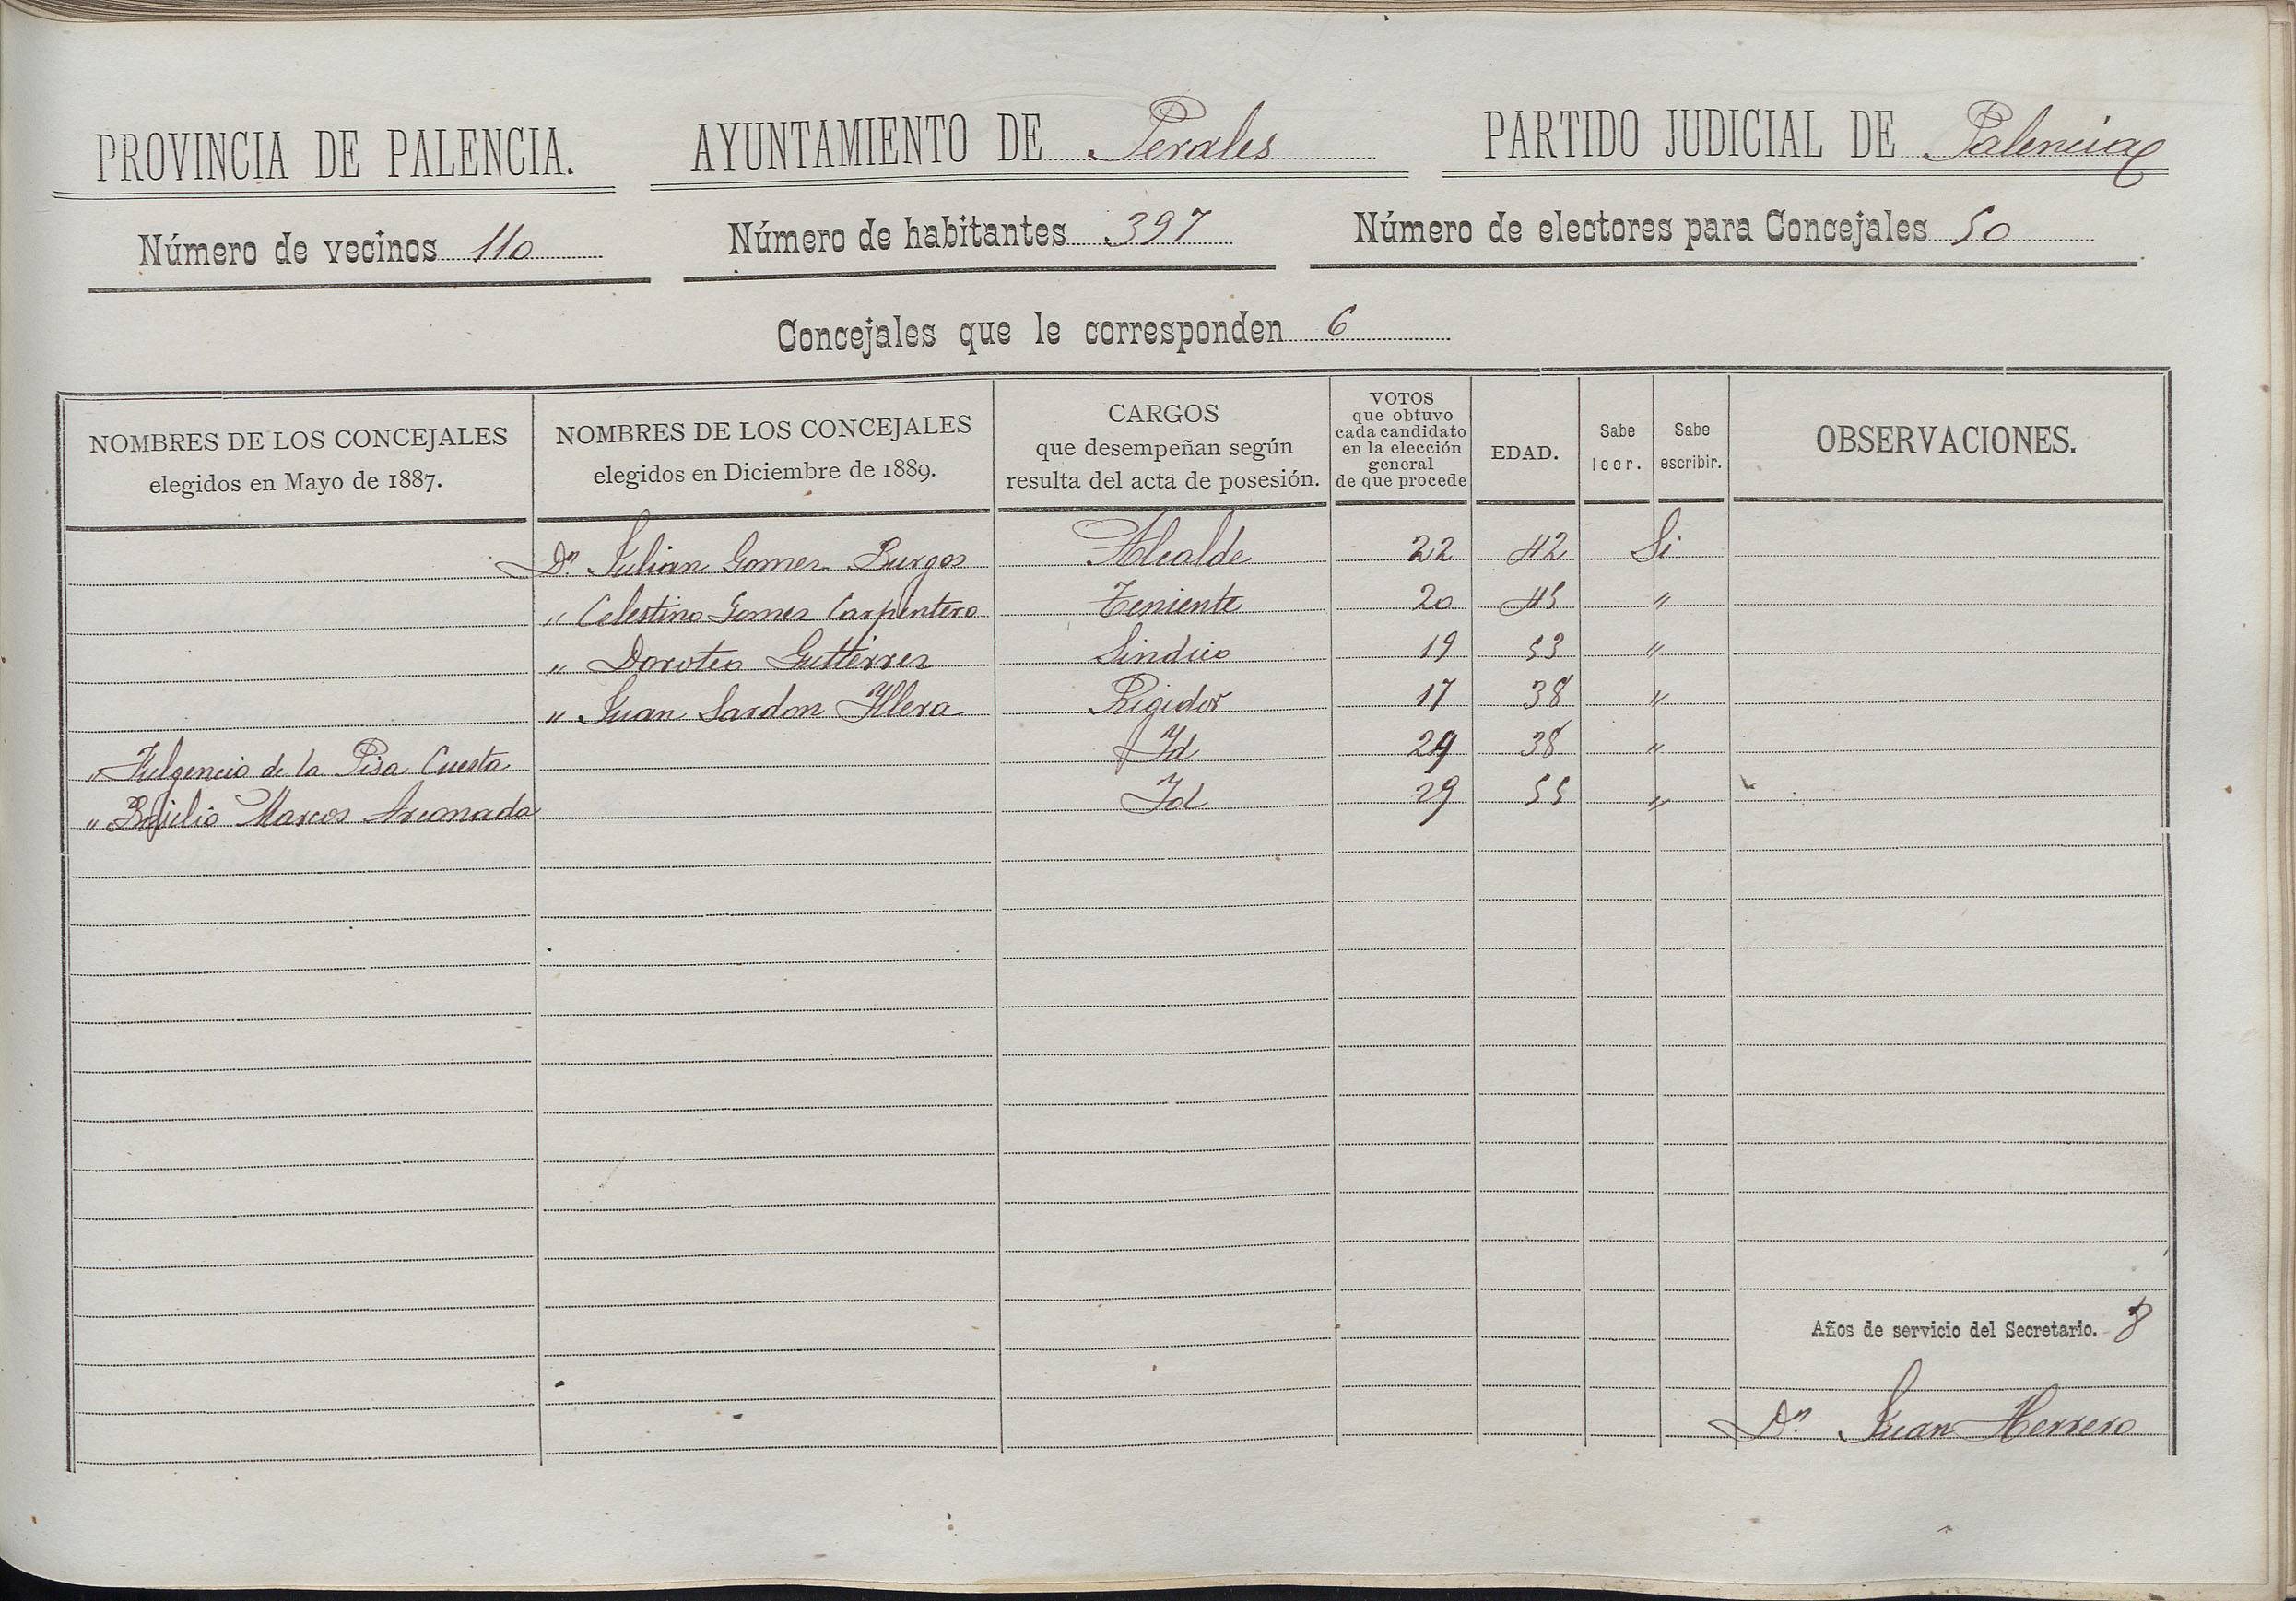 PROVINCIA DE PALENCIA. AYUNTAMIENTO DE Perales PARTIDO JUDICIAL DE Palencia
Número de vecinos 110 Número de habitantes 397 Número de electores para Concejales 50
Concejales que le corresponden 6
NOMBRES DE LOS CONCEJALES
elegidos en Mayo de 1887.
NOMBRES DE LOS CONCEJALES
elegidos en Diciembre de 1889.
CARGOS
que desempeñan según
resulta del acta de posesión.
VOTOS
que obtuvo
cada candidato
en la elección
general
de que procede
EDAD.
Sabe
leer.
Sabe
escribir.
OBSERVACIONES.
Dn. Julian Gomez Burgos Alcalde 22 42 Si
" Celestino Gomez Carpintero Teniente 20 45 "
" Doroteo Gutierrez Sindico 19 53 "
" Juan Sardon Yllera Rigidor 17 38 "
" Fulgencio de la Pisa Cuesta Id 29 38 "
" Basilio Marcos Arconada Id 29 55 "
Años de servicio del Secretario. 8
Dn. Juan Herrero